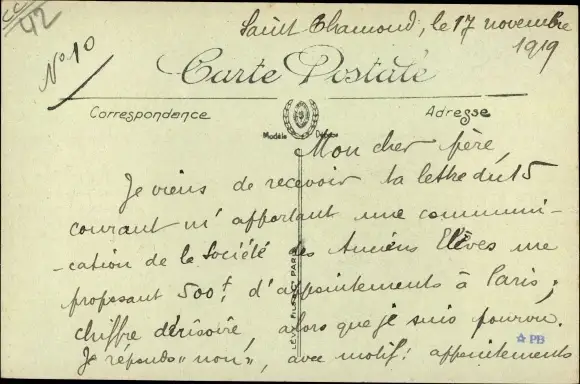 42
N° 10
Saint Chamond, le 17 novembre
1919
Carte Postale
Correspondance
Adresse
Modèle Déposé
LEVY FILS ET C PARIS
Mon cher frère,
Je viens de recevoir ta lettre du 15
courant m'apportant une communi-
-cation de la Société des Anciens Elèves me
proposant 500f. d'appointements à Paris;
chiffre dérisoire, alors que je suis pourvu.
Je réponds "non", avec motif: appointements
PB